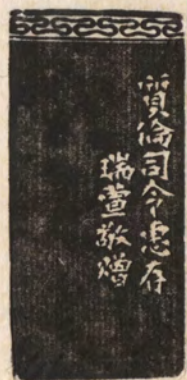 質倫司令惠存
瑞萱敬贈